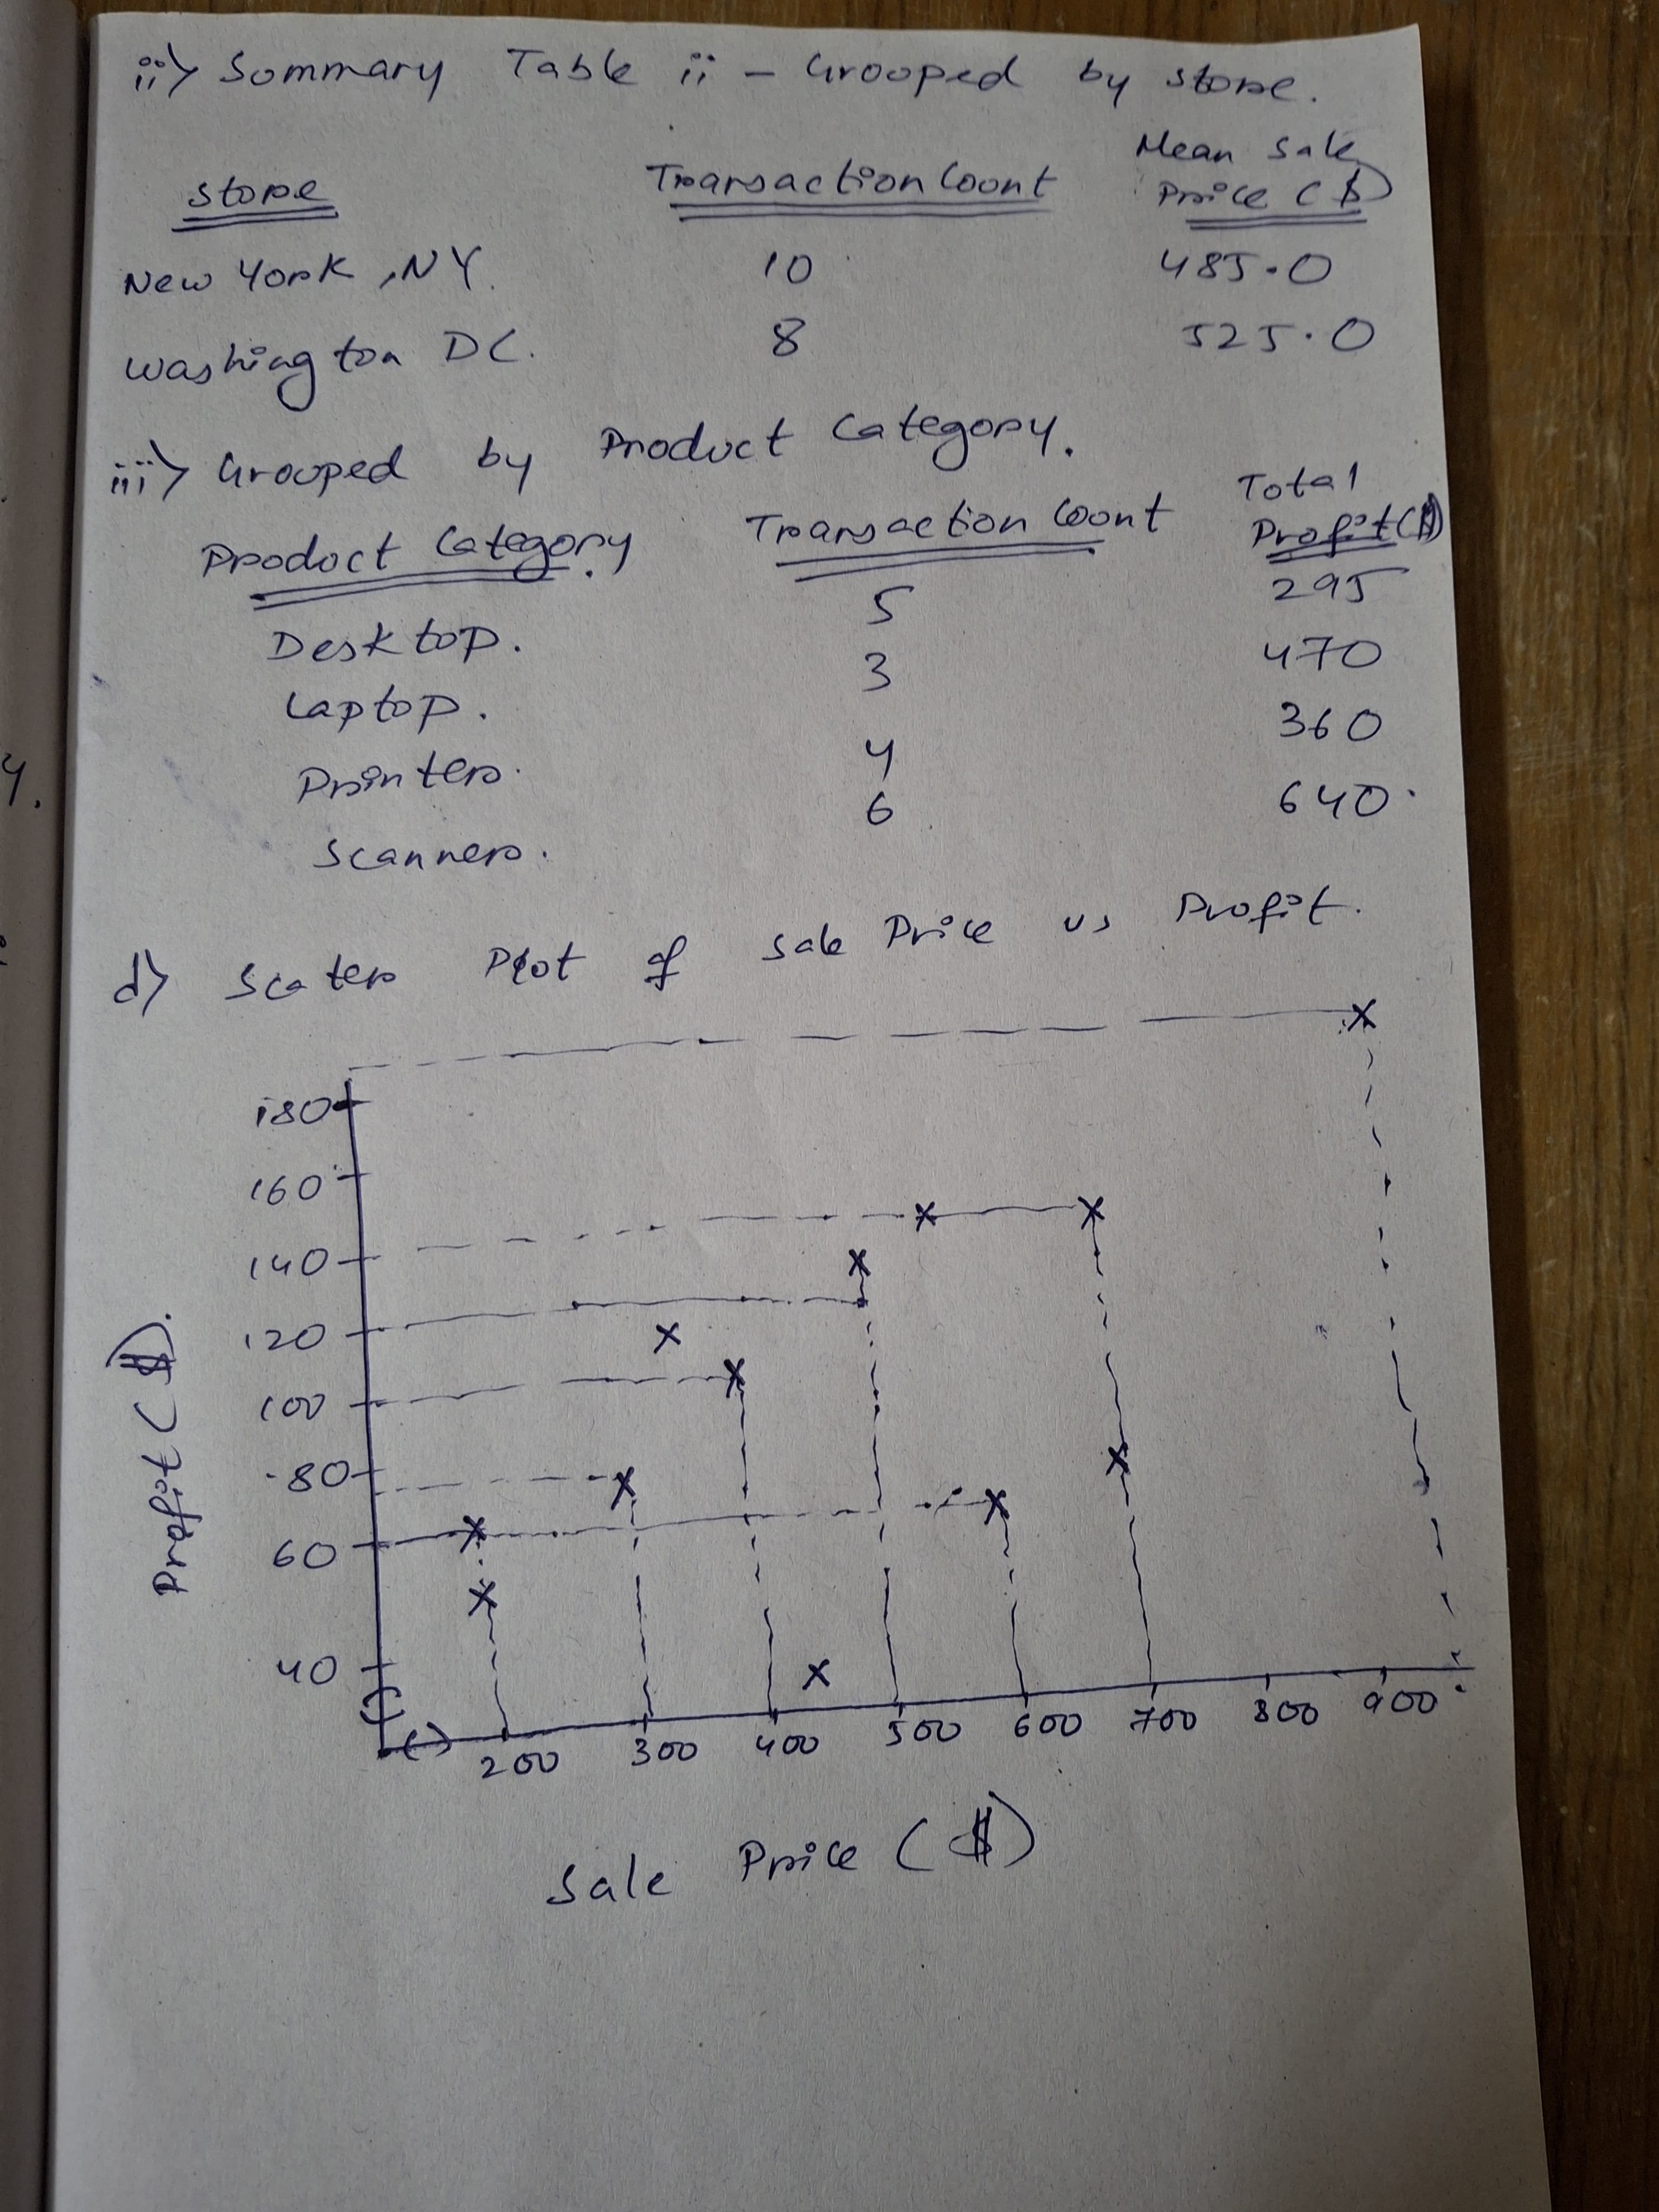 ii) Summary Table ii - Grouped by store.
Store Transaction Count Mean Sale Price ($)
New York, NY. 10 485.0
Washington DC. 8 525.0
iii) Grouped by Product Category.
Product Category. Transaction Count Total Profit ($)
Desktop. 5 295
Laptop. 3 470
Printers. 4 360
Scanners. 6 640.
d) Scater Plot of Sale Price vs Profit.
180
160
140
120
100
80
60
40
Profit ($).
200 300 400 500 600 700 800 900
Sale Price ($)
4.